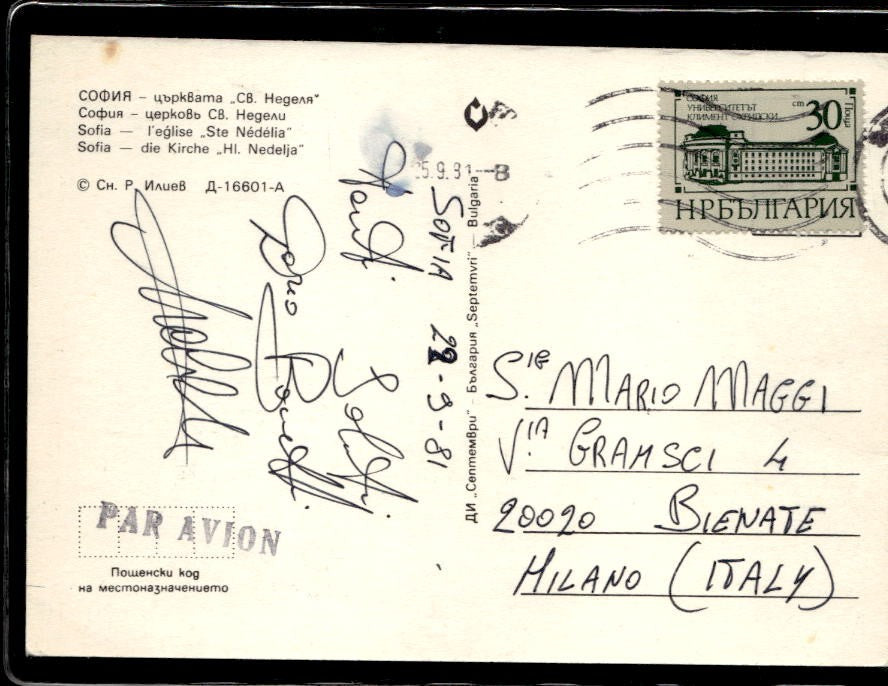 СОФИЯ – църквата „Св. Неделя"
София – церковь Св. Недели
Sofia — l'eģlise „Ste Nédélia"
Sofia — die Kirche „Hl. Nedelja"
© Сн. Р. Илиев Д-16601-А
5.9.81--8
СОФИЯ
УНИВЕРСИТЕТЪТ
КЛИМЕНТ ОХРИДСКИ
ст 30
Поща
НРБЪЛГАРИЯ
ДИ „Септември" – България „Septemvri" – Bulgaria
SOFIA 22-9-81
S.IG MARIO MAGGI
V.IA GRAMSCI 4
20020 BIENATE
MILANO (ITALY)
PAR AVION
Пощенски код
на местоназначението